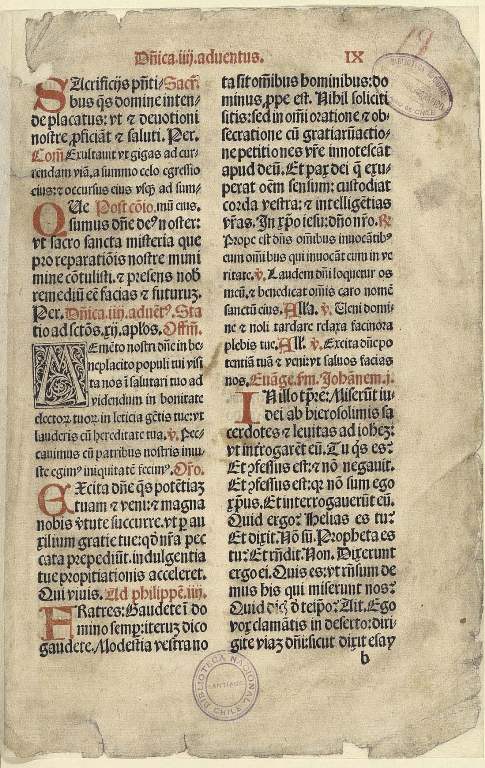 Dñica.iiij.aduentus. IX
19
SAcrificijs pñti⸗ Sacrñ.
bus q̃s domine inten⸗
de placatus: vt ⁊ deuotioni
nostre ꝓficiãt ⁊ saluti. Per.
Com̃ Exultauit vt gigas ad cur⸗
rendam viã, a summo celo egressio
eius: ⁊ occursus eius vsq̃ ad sum⸗
QUe Post cõio. mũ eius.
sumus dñe deꝰ noster:
vt sacro sancta misteria que
pro reparatiõis nostre muni
mine cõtulisti. ⁊ presens nob̃
remediũ eẽ facias ⁊ futurum.
Per. Dñica.iiij.aduẽtꝰ. Sta
tio ad sctõs.xij.aplos. Offm̃.
MEmẽto nostri dñe in be⸗
neplacito populi tui visi
ta nos ĩ salutari tuo ad
videndum in bonitate
electoꝝ tuoꝝ in leticia gẽtis tue: vt
lauderis cũ hereditate tua. v̓. Pec⸗
cauimus cũ patribus nostris iniu⸗
ste egimꝰ iniquitatẽ fecimꝰ. Oro.
EXcita dñe q̃s potẽtiam
tuam ⁊ veni: ⁊ magna
nobis v̓tute succurre. vt ꝑ au
xilium gratie tue: qd̓ nr̃a pec
cata prepediũt. indulgentia
tue propitiationis acceleret.
Qui viuis. Ad philippẽ.iiij.
FRatres: Gaudete ĩ do
mino semꝑ: iterum dico
gaudete. Modestia vestra no
ta sit om̃ibus hominibus: do
minus ꝓpe est. Nihil soliciti
sitis: sed in om̃i oratione ⁊ ob
secratione cũ gratiarũ actio⸗
ne petitiones vr̃e innotescãt
apud deũ. Et pax dei q̃ exu⸗
perat oẽm sensum: custodiat
corda vestra: ⁊ intelligẽtias
vr̃as. In xp̃o iesu: dño nr̃o. R̓
Prope est dñs om̃ibus inuocãtibꝰ
eum om̃ibus qui inuocãt eum in ve
ritate. v̓. Laudem dñi loquetur os
meũ, ⁊ benedicat om̃is caro nomẽ
sanctũ eius. Alla̅. v̓. Veni domi⸗
ne ⁊ noli tardare relaxa facinora
plebis tue. All̃. v̓. Excita dñe po
tentiã tuã ⁊ veni: vt saluos facias
nos. Euãge.sm̃. Johãnem.j.
IN illo tp̃re: Miserũt iu⸗
dei ab hierosolimis sa
cerdotes ⁊ leuitas ad iohez:
vt interrogarẽt eũ. Tu q̓s es?
Et ꝯfessus est: ⁊ nõ negauit.
Et ꝯfessus est: qꝛ nõ sum ego
xp̃us. Et interrogauerũt eũ.
Quid ergo? Helias es tu?
Et dixit. Nõ sũ. Propheta es
tu? Et rñdit. Non. Dixerunt
ergo ei. Quis es: vt rñsum de
mus his qui miserunt nos?
Quid dicis d̓ teip̃o? Ait. Ego
vox clamãtis in deserto: diri⸗
gite viaz dñi: sicut dixit esay
b
BIBLIOTECA NACIONAL
SANTIAGO
CHILE